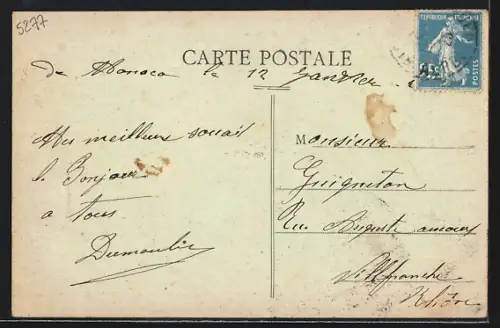 5277
CARTE POSTALE
REPUBLIQUE FRANÇAISE
25c
POSTES
de Monaco le 12 Janvier
Mes meilleurs souait
le Bonjour
a tous
Dumoulin
Monsieur
Guigneton
Rue Auguste
Villefranche
Rhône